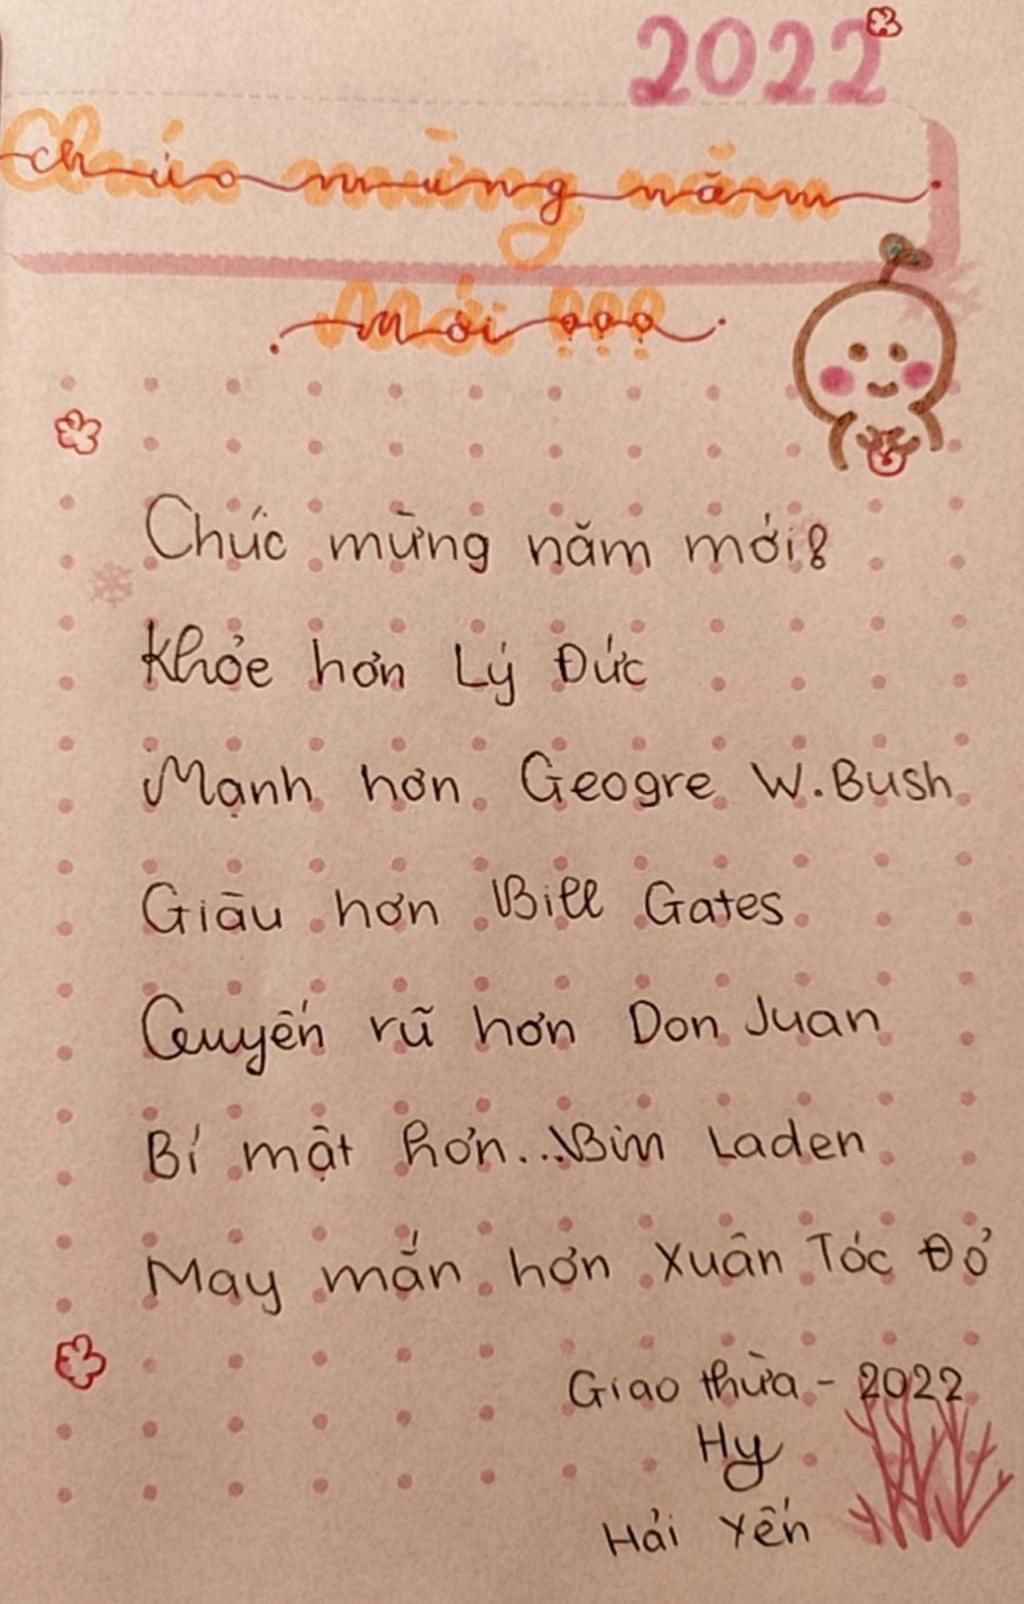 2022
Chúc mừng năm
Mới !!!
Chúc mừng năm mới!
Khỏe hơn Lý Đức
Mạnh hơn Geogre W.Bush
Giàu hơn Bill Gates
Quyến rũ hơn Don Juan
Bí mật hơn...Bin Laden
May mắn hơn Xuân Tóc Đỏ
Giao thừa - 2022
Hy
Hải Yến